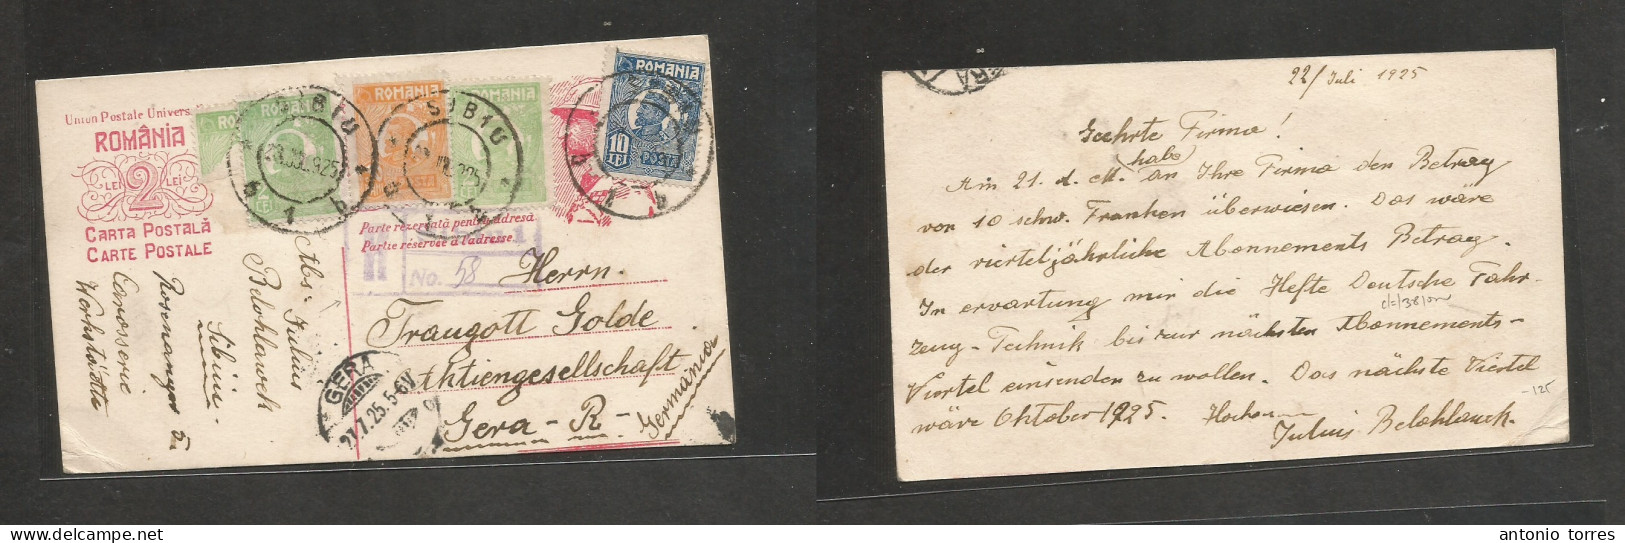 Union Postale Univers
ROMÂNIA
LEI 2 LEI
CARTA POSTALĂ
CARTE POSTALE
ROMANIA
ROMANIA
ROMANIA
ROMANIA
10
LEI
POSTA
SIBIU
23.JUL.925
SIBIU
Parte rezervată pentru adresă
Partie réservée à l'adresse
R
No. 58
Herrn.
Traugott Golde
Aktiengesellschaft
Gera-R-
Germania
GERA
27.7.25.5-6V
Abs: Julius
Belohlawek
Sibiu
Rosenanger 5
Carosserie
Werkstätte
GERA
22/Juli 1925
Geehrte Firma!
habe
Am 21. d. M. an Ihre Firma den Betrag
von 10 schw. Franken überwiesen. Das wäre
der vierteljährliche Abonnements Betrag.
In erwartung mir die Hefte Deutsche Fahr-
zeug-Technik bis zur nächsten Abonnements-
Viertel einsenden zu wollen. Das nächste Viertel
wäre Oktober 1925.
Julius Belohlawek.
-125
antonio torres